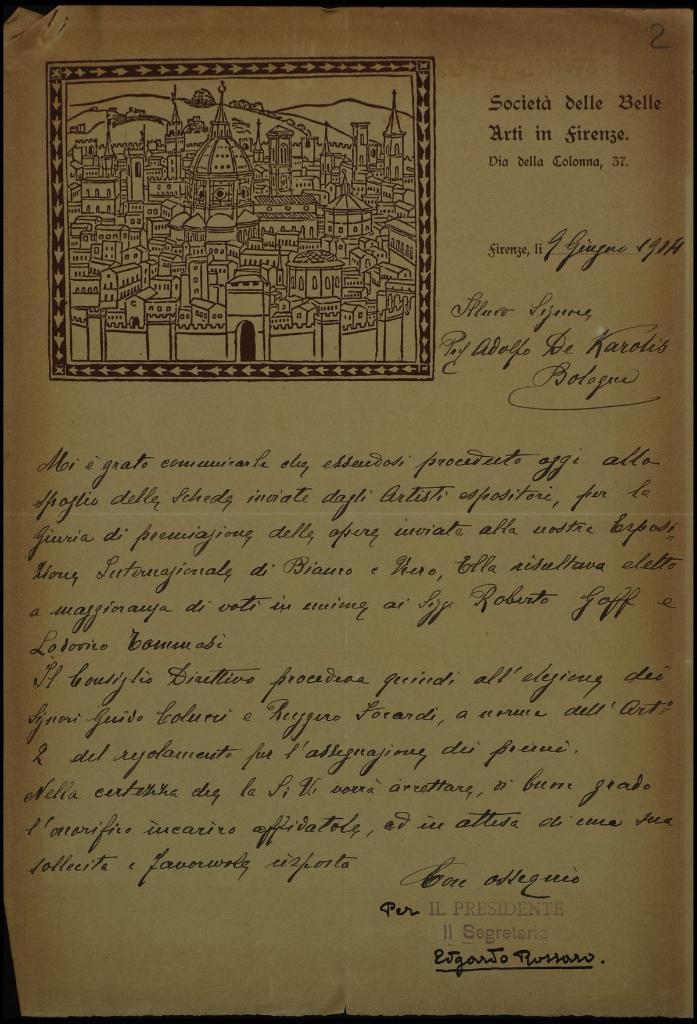 2
Società delle Belle
Arti in Firenze.
Via della Colonna, 37.
Firenze, li 9 Giugno 1914
Illmo Signore
Prof Adolfo De Karolis
Bologna
Mi è grato comunicarle che essendosi proceduto oggi allo
spoglio delle schede inviate dagli Artisti espositori, per la
Giuria di premiazione delle opere inviate alla nostra Esposi-
zione Internazionale di Bianco e Nero, Ella risultava eletto
a maggioranza di voti in unione ai Sigg Roberto Goff e
Lodovico Tommasi
Il Consiglio Direttivo procedeva quindi all'elezione dei
Signori Guido Colucci e Ruggero Focardi, a norma dell'Art.º
2 del regolamento per l'assegnazione dei premi.
Nella certezza che la S. V. vorrà accettare, di buon grado
l'onorifico incarico affidatole, ed in attesa di una sua
sollecita e favorevole risposta
Con ossequio
Per IL PRESIDENTE
Il Segretario
Edgardo Rossaro.